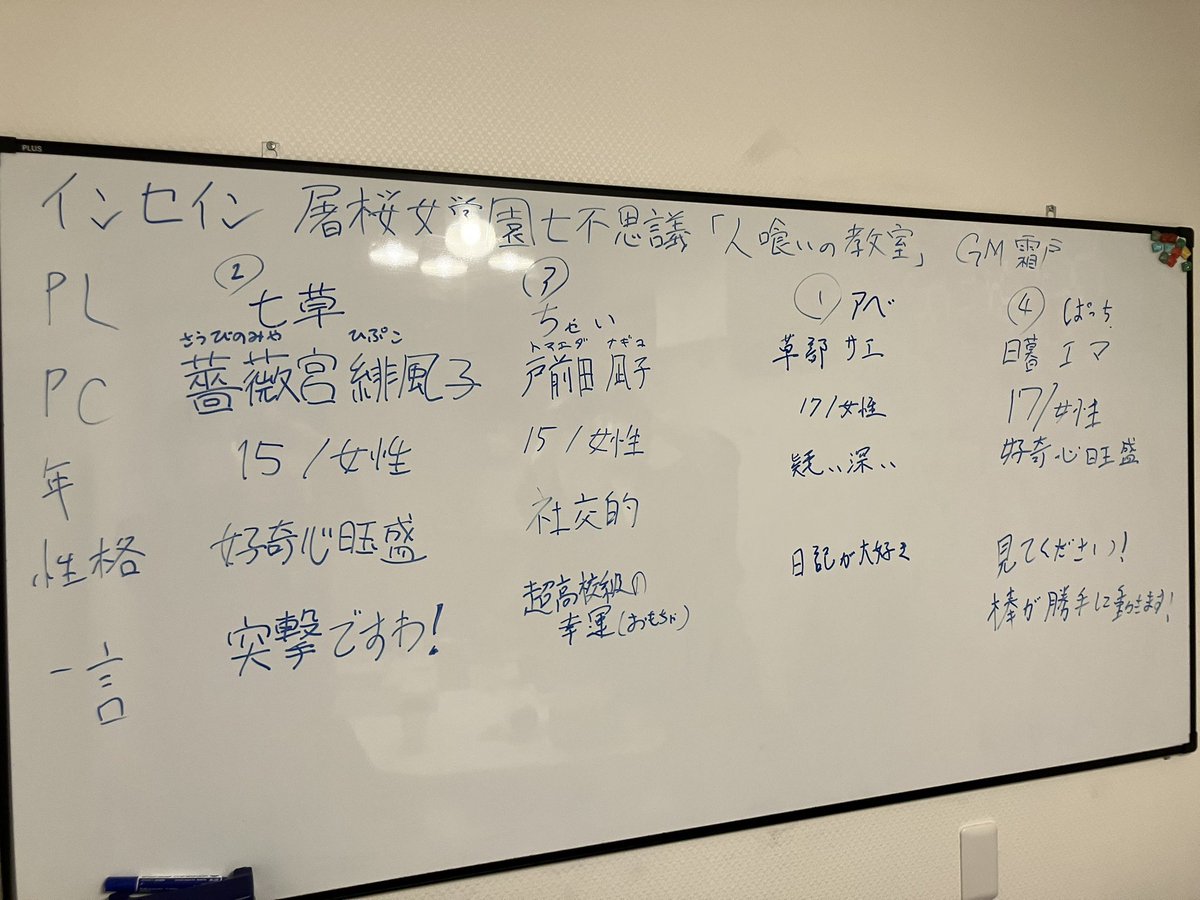 PLUS
インセイン 屠桜女学園七不思議「人喰いの教室」 GM 霜戸
PL ② 七草 ③ ちせい ① アベ ④ ぱっち
さうびのみや ひぷこ トマエダ ナギコ
PC 薔薇宮 緋風子 戸前田 凪子 草部 サエ 日暮 エマ
年 15/女性 15/女性 17/女性 17/女性
性格 好奇心旺盛 社交的 疑い深い 好奇心旺盛
一言 突撃ですわ! 超高校級の 日記が大好き 見てください!
幸運(おもちゃ) 棒が勝手に動きます!